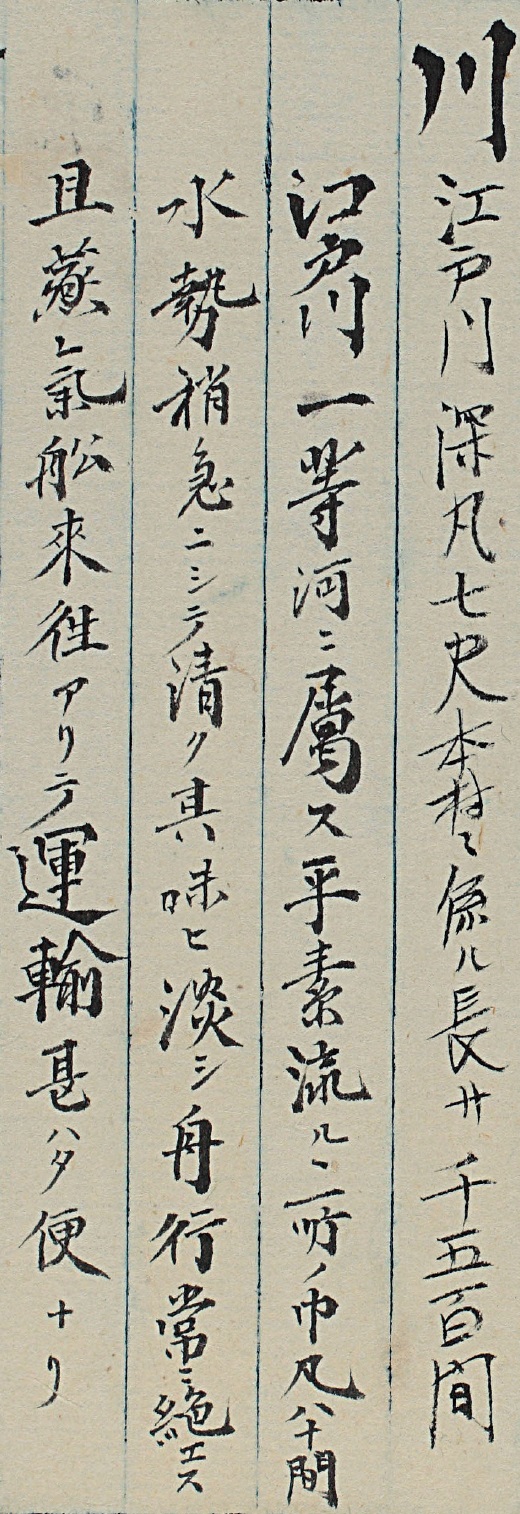 川 江戸川 深凡七尺本村ニ係ル長サ千五百間
江戸川一等河ニ属ス平素流ルヽ所ノ巾凡八十間
水勢稍急ニシテ清ク其味ヒ淡シ舟行常ニ絶エス
且蒸氣舩來徃アリテ運輸甚ハタ便ナリ